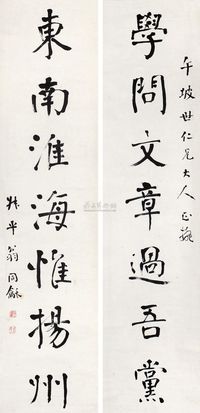 午坡世仁兄大人正
學問文章過吾黨
東南淮海惟揚州
翁同龢